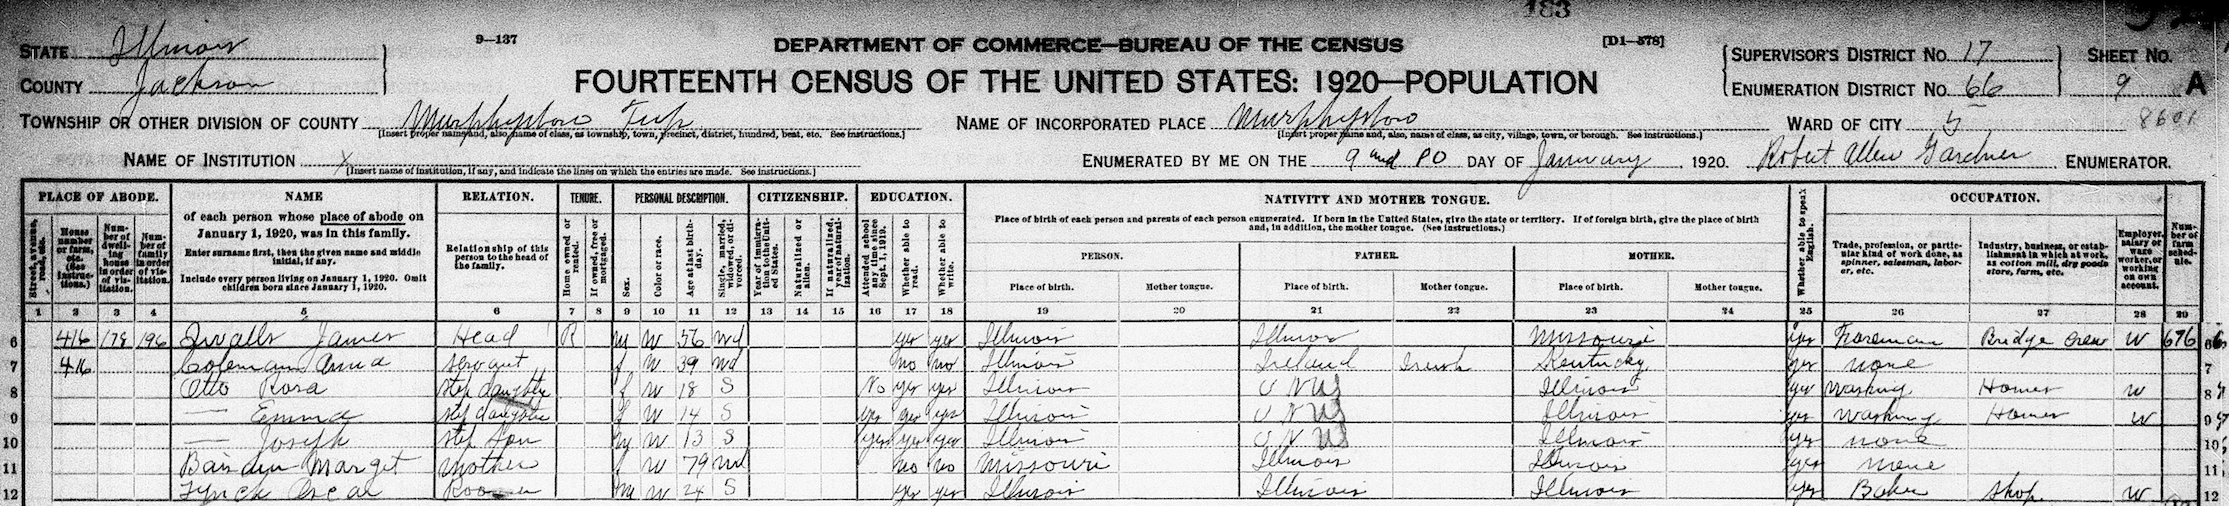 183
STATE Illinois
9—137
DEPARTMENT OF COMMERCE—BUREAU OF THE CENSUS
[D1—578]
SUPERVISOR'S DISTRICT NO. 17
SHEET NO.
COUNTY Jackson
FOURTEENTH CENSUS OF THE UNITED STATES: 1920—POPULATION
ENUMERATION DISTRICT NO. 66
9 A
TOWNSHIP OR OTHER DIVISION OF COUNTY Murphysboro Twp
[Insert proper name and, also, name of class, as township, town, precinct, district, hundred, beat, etc. See instructions.]
NAME OF INCORPORATED PLACE Murphysboro
[Insert proper name and, also, name of class, as city, village, town, or borough. See instructions.]
WARD OF CITY 5
8601
NAME OF INSTITUTION X
[Insert name of institution, if any, and indicate the lines on which the entries are made. See instructions.]
ENUMERATED BY ME ON THE 9 and 10 DAY OF January 1920. Robert Allen Gardner ENUMERATOR.
PLACE OF ABODE.
Street, avenue, road, etc.
House number or farm, etc. (See instructions.)
Number of dwelling house in order of visitation.
Number of family in order of visitation.
NAME
of each person whose place of abode on January 1, 1920, was in this family.
Enter surname first, then the given name and middle initial, if any.
Include every person living on January 1, 1920. Omit children born since January 1, 1920.
RELATION.
Relationship of this person to the head of the family.
TENURE.
Home owned or rented.
If owned, free or mortgaged.
PERSONAL DESCRIPTION.
Sex.
Color or race.
Age at last birthday.
Single, married, widowed, or divorced.
CITIZENSHIP.
Year of immigration to the United States.
Naturalized or alien.
If naturalized, year of naturalization.
EDUCATION.
Attended school any time since Sept. 1, 1919.
Whether able to read.
Whether able to write.
NATIVITY AND MOTHER TONGUE.
Place of birth of each person and parents of each person enumerated. If born in the United States, give the state or territory. If of foreign birth, give the place of birth and, in addition, the mother tongue. (See instructions.)
PERSON.
Place of birth.
Mother tongue.
FATHER.
Place of birth.
Mother tongue.
MOTHER.
Place of birth.
Mother tongue.
Whether able to speak English.
OCCUPATION.
Trade, profession, or particular kind of work done, as spinner, salesman, laborer, etc.
Industry, business, or establishment in which at work, as cotton mill, dry goods store, farm, etc.
Employer, salary or wage worker, or working on own account.
Number of farm schedule.
1 2 3 4 5 6 7 8 9 10 11 12 13 14 15 16 17 18 19 20 21 22 23 24 25 26 27 28 29
6 416 178 196 James Head R m W 56 wd yes yes Illinois Illinois Missouri yes Foreman Bridge Crew W 676 6
7 416 Coleman Anna servant f W 39 wd no no Illinois Ireland Irish Kentucky yes none 7
8 Otto Rosa step daughter f W 18 S No yes yes Illinois U N US Illinois yes Washing Homes W 8
9 — Emma step daughter f W 14 S yes yes yes Illinois U N US Illinois yes Washing Homes W 9
10 — Joseph step son m W 13 S yes yes yes Illinois U N US Illinois yes none 10
11 Margit mother f W 79 wd no no Missouri Illinois Illinois yes none 11
12 Oscar Roomer m W 24 S yes yes Illinois Illinois Illinois yes Baker shop W 12